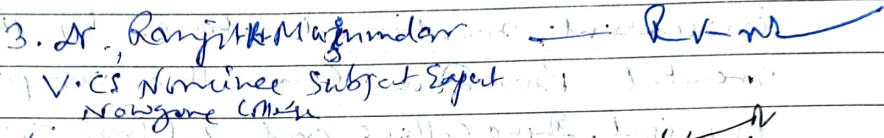 3. Dr. Ranjit Kr Majumdar
V.C's Nominee Subject Expert
Nowgong College